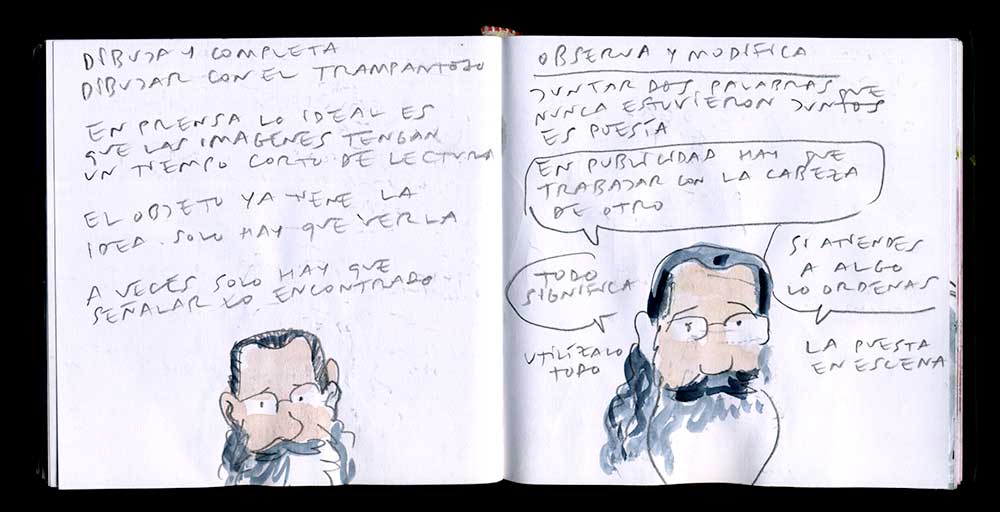 DIBUJA Y COMPLETA
DIBUJAR CON EL TRAMPANTOJO
EN PRENSA LO IDEAL ES
QUE LAS IMAGENES TENGAN
UN TIEMPO CORTO DE LECTURA
EL OBJETO YA TIENE LA
IDEA. SOLO HAY QUE VERLA
A VECES SOLO HAY QUE
SEÑALAR LO ENCONTRADO
OBSERVA Y MODIFICA
JUNTAR DOS PALABRAS QUE
NUNCA ESTUVIERON JUNTOS
ES PUESÍA
EN PUBLICIDAD HAY QUE
TRABAJAR CON LA CABEZA
DE OTRO
TODO
SIGNIFICA
SI ATIENDES
A ALGO
LO ORDENAS
UTILÍZALO
TODO
LA PUESTA
EN ESCENA